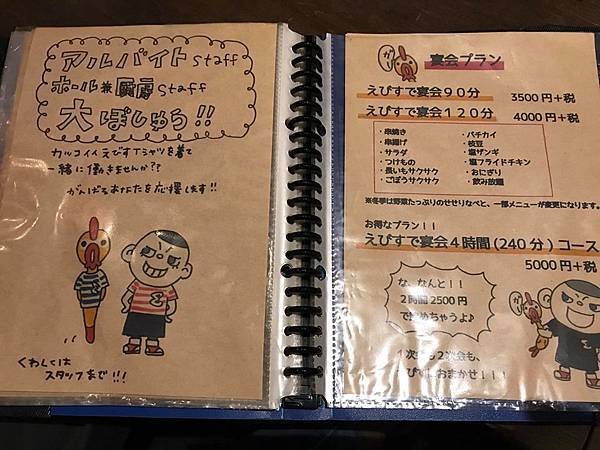 アルバイト staff
ホール兼厨房 staff
大ぼしゅう!!
カッコイイえびすTシャツを着て
一緒に働きませんか??
がんばるあなたを応援します!!
くわしくは
スタッフまで!!!
宴会プラン
えびすで宴会90分 3500円+税
えびすで宴会120分 4000円+税
・串焼き ・パチカイ
・串揚げ ・枝豆
・サラダ ・塩ザンギ
・つけもの ・塩フライドチキン
・長いもサクサク ・おにぎり
・ごぼうサクサク ・飲み放題
※冬季は野菜たっぷりのせせりなべと、一部メニューが変更になります。
お得なプラン!!
えびすで宴会4時間(240分)コース
5000円+税
な、なんと!!
2時間2500円
で飲めちゃうよ♪
1次会も2次会も、
えびすにおまかせ!!!